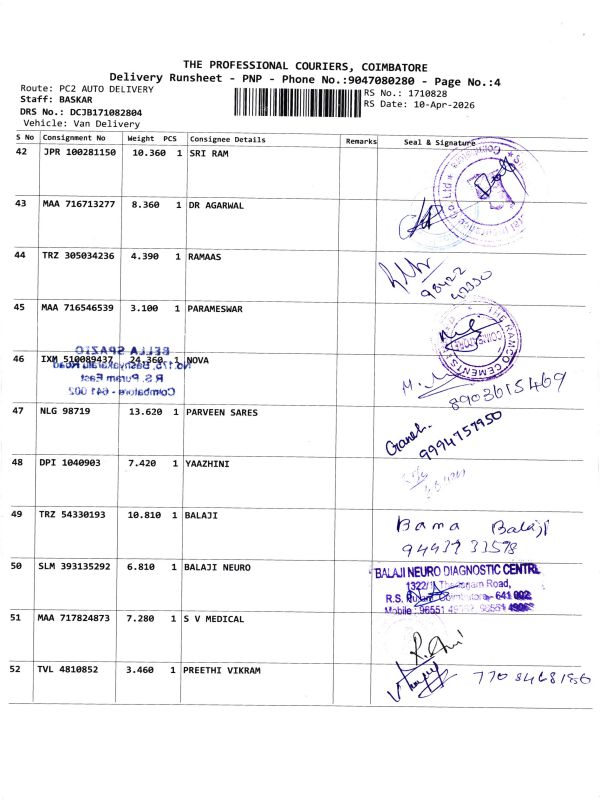 THE PROFESSIONAL COURIERS, COIMBATORE
Delivery Runsheet - PNP - Phone No.:9047080280 - Page No.:4
Route: PC2 AUTO DELIVERY
RS No.: 1710828
Staff: BASKAR
RS Date: 10-Apr-2026
DRS No.: DCJB171082804
Vehicle: Van Delivery
S No Consignment No Weight PCS Consignee Details Remarks Seal & Signature
42 JPR 100281150 10.360 1 SRI RAM
43 MAA 716713277 8.360 1 DR AGARWAL
44 TRZ 305034236 4.390 1 RAMAAS
98422
42350
45 MAA 716546539 3.100 1 PARAMESWAR
THE RAMCO CEMENTS
BELLA SPAZIO
46 IXM 510089437 24.360 1 NOVA
R. S. Puram East
Coimbatore - 641 002
8903615469
47 NLG 98719 13.620 1 PARVEEN SARES
Ganesh
9994757950
48 DPI 1040903 7.420 1 YAAZHINI
49 TRZ 54330193 10.810 1 BALAJI
Bama Balaji
9443733598
50 SLM 393135292 6.810 1 BALAJI NEURO
BALAJI NEURO DIAGNOSTIC CENTRE
Road,
R.S. Coimbatore - 641 002
Mobile : 98551
51 MAA 717824873 7.280 1 S V MEDICAL
52 TVL 4810852 3.460 1 PREETHI VIKRAM